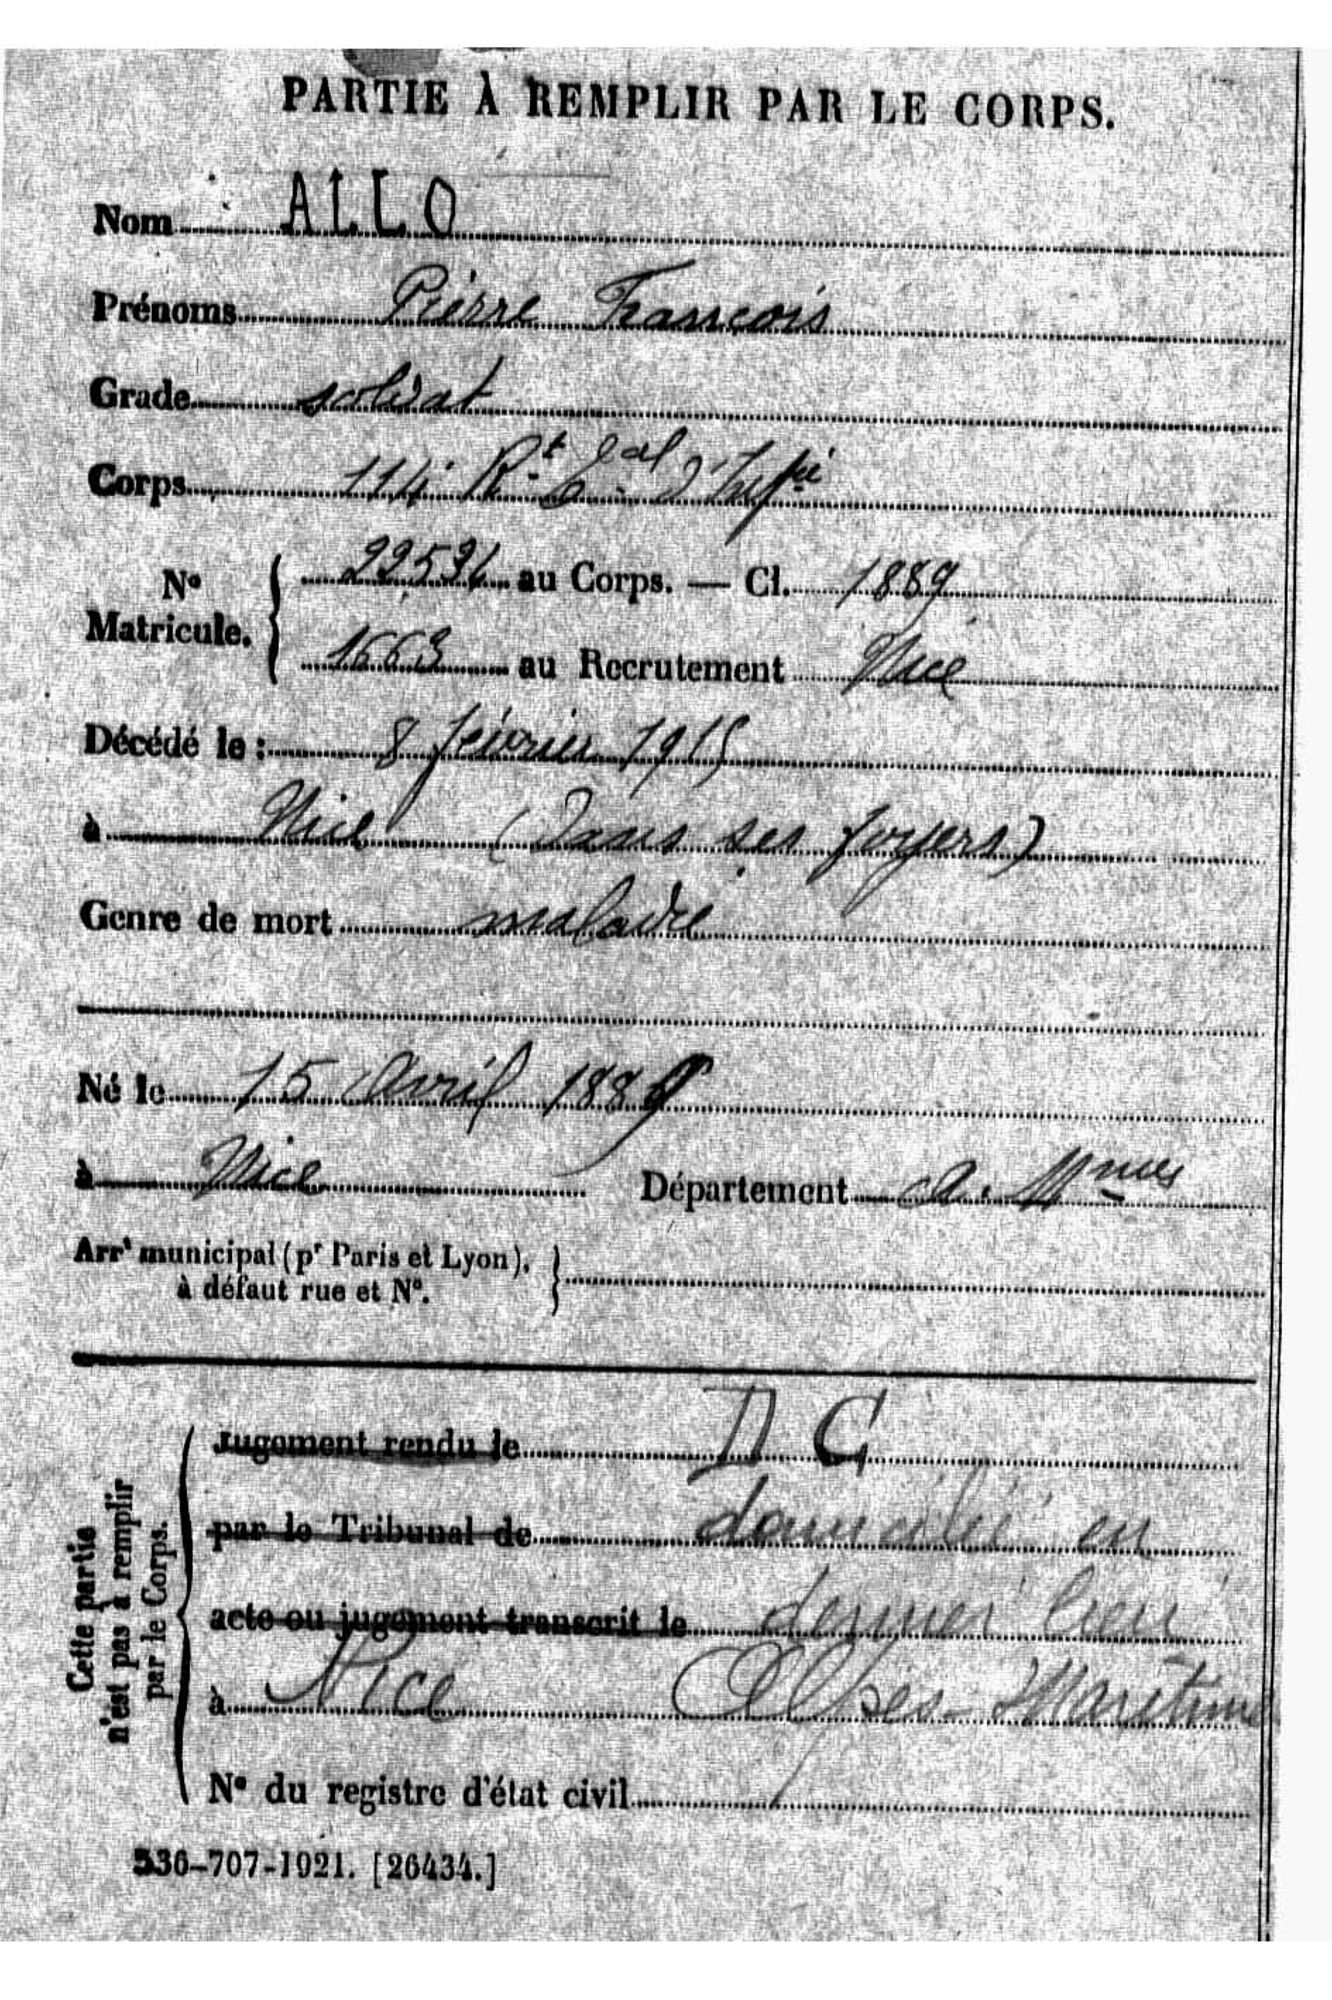 PARTIE À REMPLIR PAR LE CORPS.
Nom ALLO
Prénoms Pierre François
Grade soldat
Corps 114e Rt tal d'Infie
No Matricule. 22531 au Corps. — Cl. 1889
1663 au Recrutement Nice
Décédé le : 8 février 1915
à Nice (Dans ses foyers)
Genre de mort maladie
Né le 15 Avril 1889
à Nice Département A. Mmes
Arrt municipal (pr Paris et Lyon),
à défaut rue et No.
Cette partie
n'est pas à remplir
par le Corps.
Jugement rendu le D C
par le Tribunal de domicilié en
acte ou jugement transcrit le dernier lieu
à Nice Alpes-Maritimes
No du registre d'état civil
536-707-1921. [26434.]